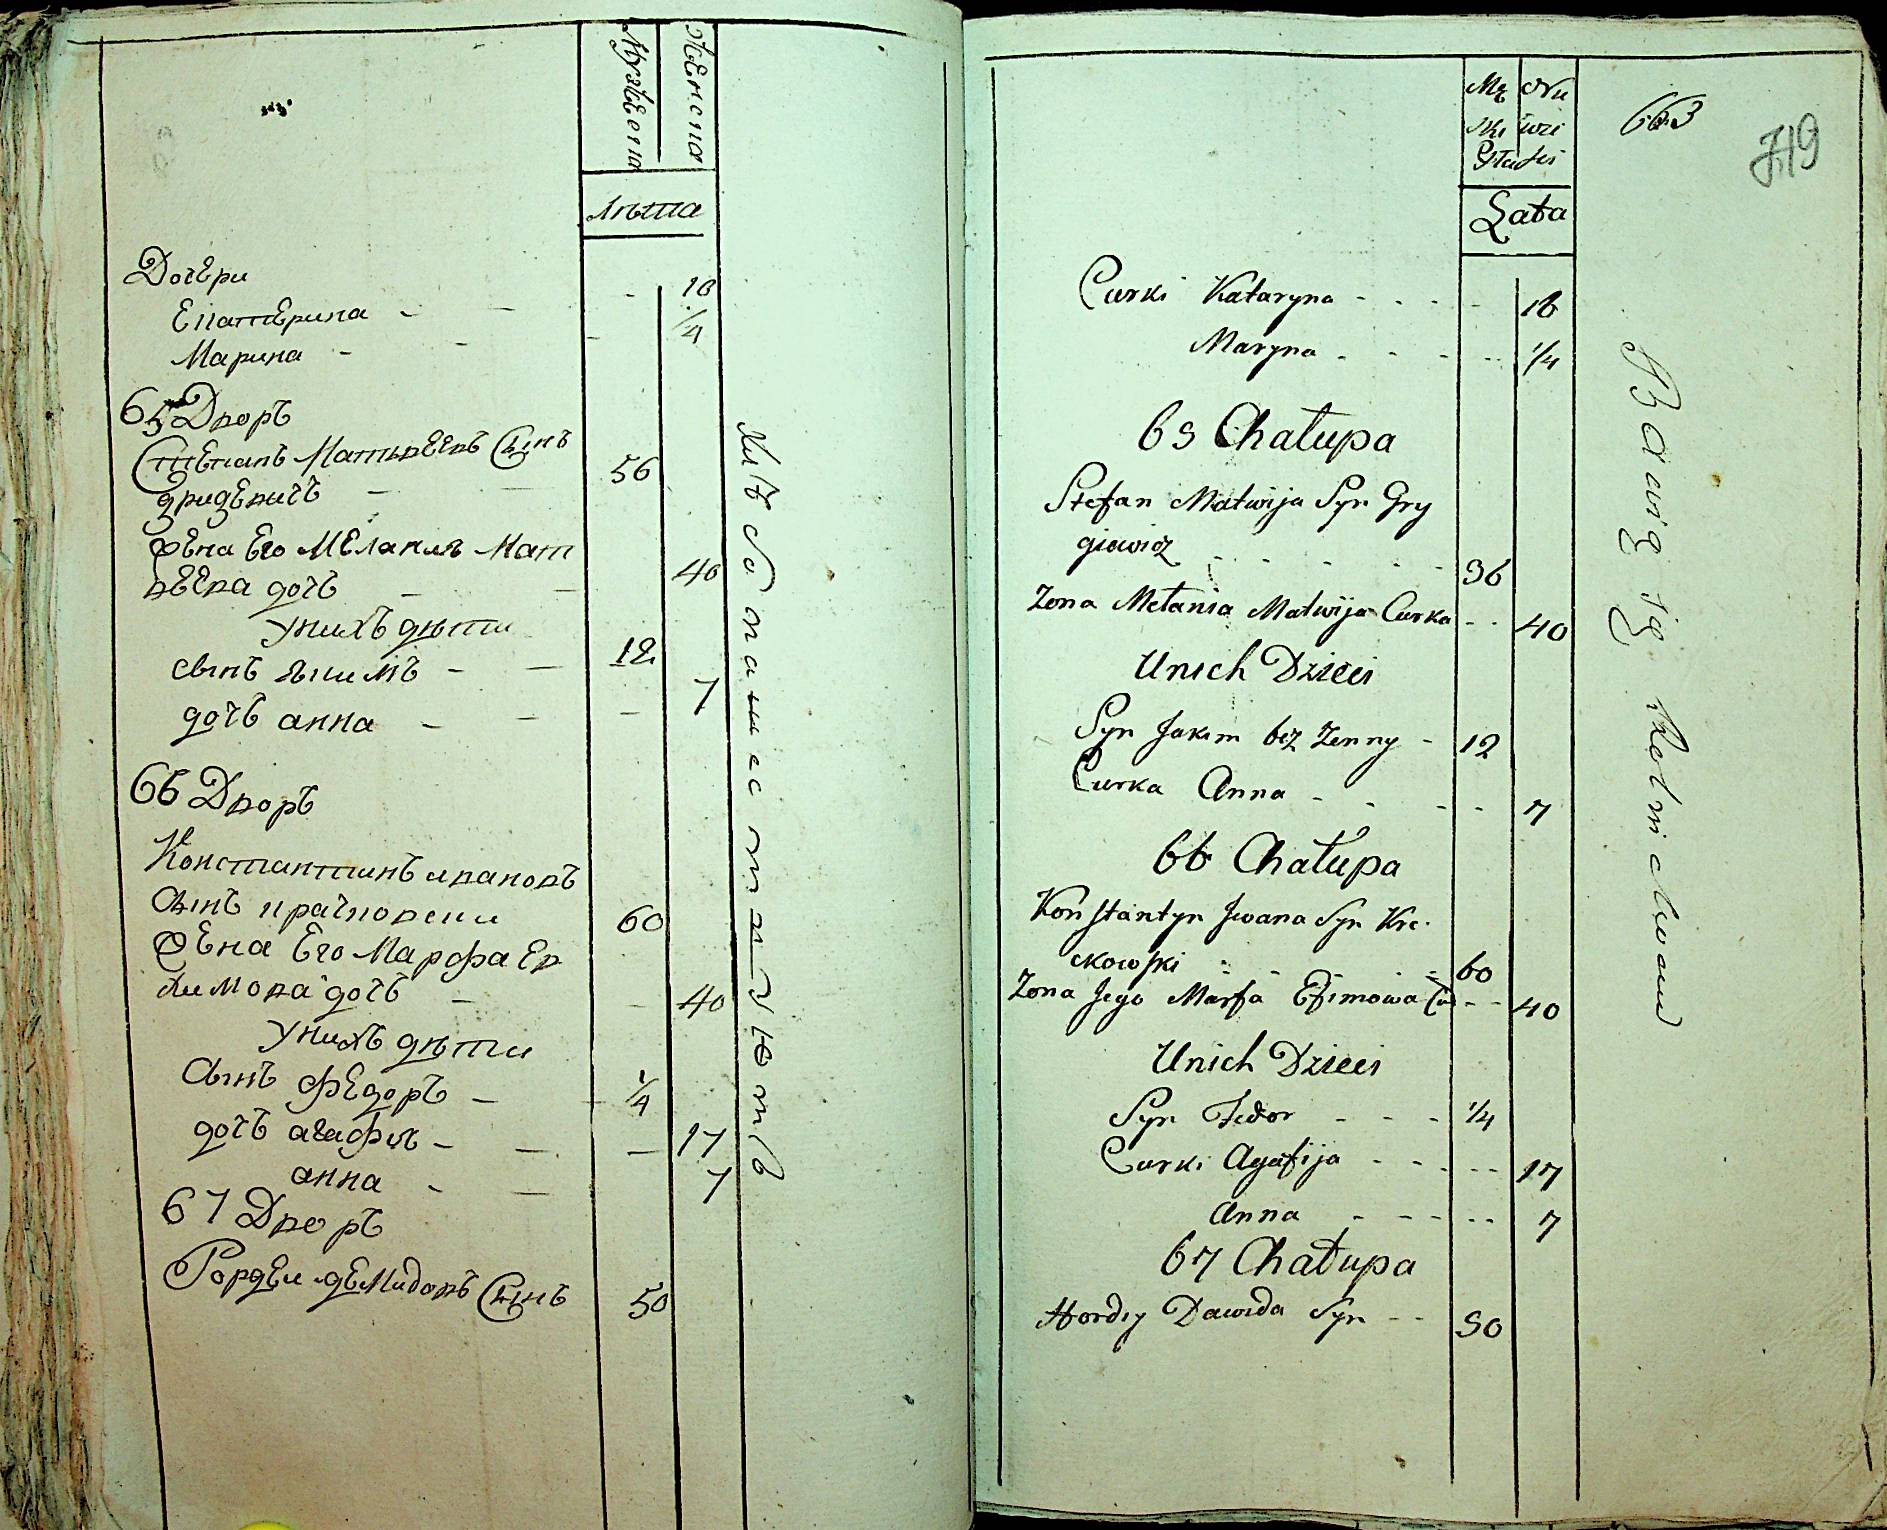 Мужеска
Женска
Лѣта
Дочери
Екатерина - - - 18
Марина - - - 1/4
65 Дворъ
Степанъ Матьвеевъ Сынъ
гридзевичъ - - 56
Жена Его Мелания Мат
веева дочь - - 40
У нихъ дѣти
сынъ якимъ - - 12
дочь анна - - - 7
66 Дворъ
Константинъ ивановъ
Сынъ крачковски 60
Жена Его Марфа Еө
химова дочь - - 40
У нихъ дѣти
Сынъ федоръ - - 1/4
дочь агафия - - - 17
анна - - 7
67 Дворъ
Гордеи демидовъ Сынъ 50
Хлѣбопашествуютъ
Mę Nie
ski wzi
Stuski
Łata
663
719
Curki Kataryna - - - - 18
Maryna - - - - 1/4
65 Chałupa
Stefan Matwija Syn Gry
giewicz - - - - - 36
Zona Mełania Matwija Curka - - 40
Unich Dzieci
Syn Jakim bez Zenny - 12
Curka Anna - - - - 7
66 Chałupa
Konstantyn Jwana Syn Kre
ckowski - - - - 60
Zona Jego Marfa Efimowa Cu - - 40
Unich Dzieci
Syn Fedor - - - 1/4
Curki Agafija - - - - - 17
Anna - - - - - 7
67 Chałupa
Hordiy Dawida Syn - - 50
Bawią się Rolnictwem